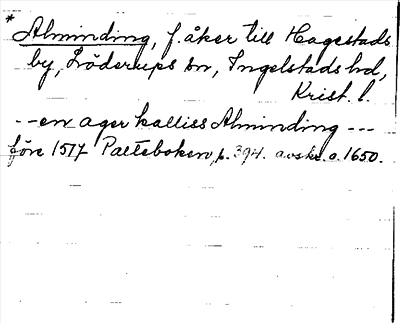 * Alminding, f. åker till Hagestads
by, Löderups sn, Ingelstads hd,
Krist. l.
--en ager kalliss Alminding---
före 1517 Palteboken, p. 394. avskr. o. 1650.